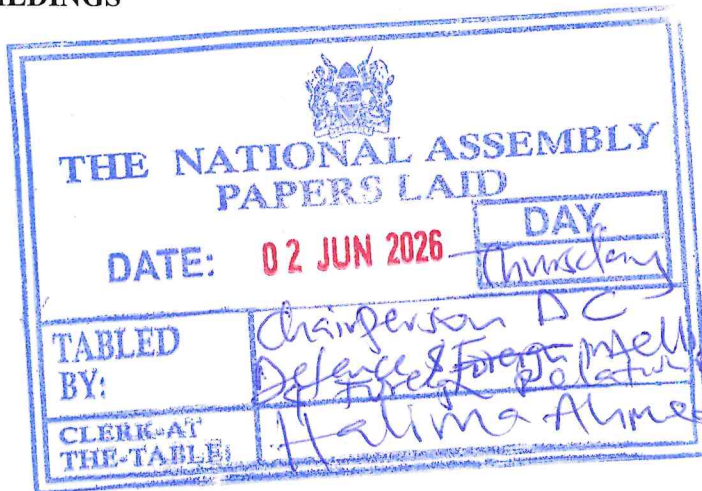 THE NATIONAL ASSEMBLY
PAPERS LAID
DATE: 02 JUN 2026
DAY.
Thursday
TABLED BY:
Chairperson DC
Defence & Foreign
Foreign Relations
CLERK-AT THE-TABLE:
Halima Ahmed